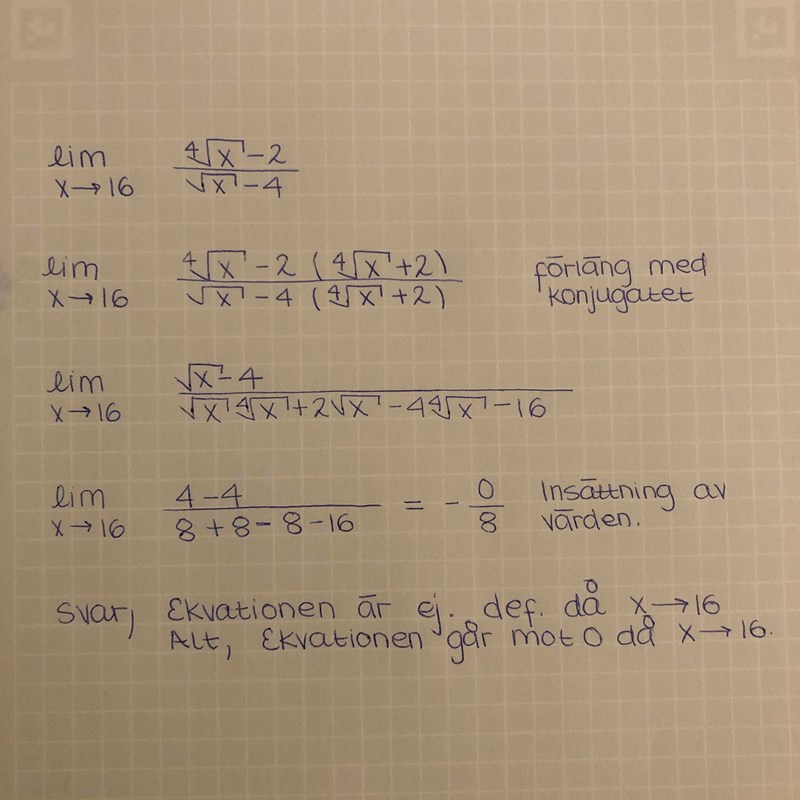 lim x→16 ∜x - 2 / √x - 4
lim x→16 ∜x - 2 (∜x + 2) / √x - 4 (∜x + 2) förläng med
konjugatet
lim x→16 √x - 4 / √x ∜x + 2√x - 4∜x - 16
lim x→16 4 - 4 / 8 + 8 - 8 - 16 = - 0/8 Insättning av
värden.
svar, Ekvationen är ej. def. då x→16
Alt, Ekvationen går mot 0 då x→16.